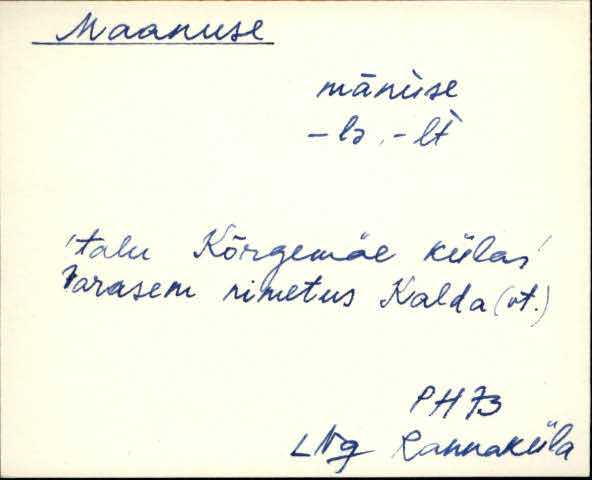 Maanuse
mānùse
-lə, -lt̀
'talu Kõrgemäe külas'
Varasem nimetus Kalda (vt.)
PH 73
LNg Rannaküla